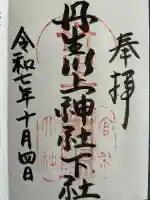 奉拝
丹生川上神社下社
令和七年十月四日